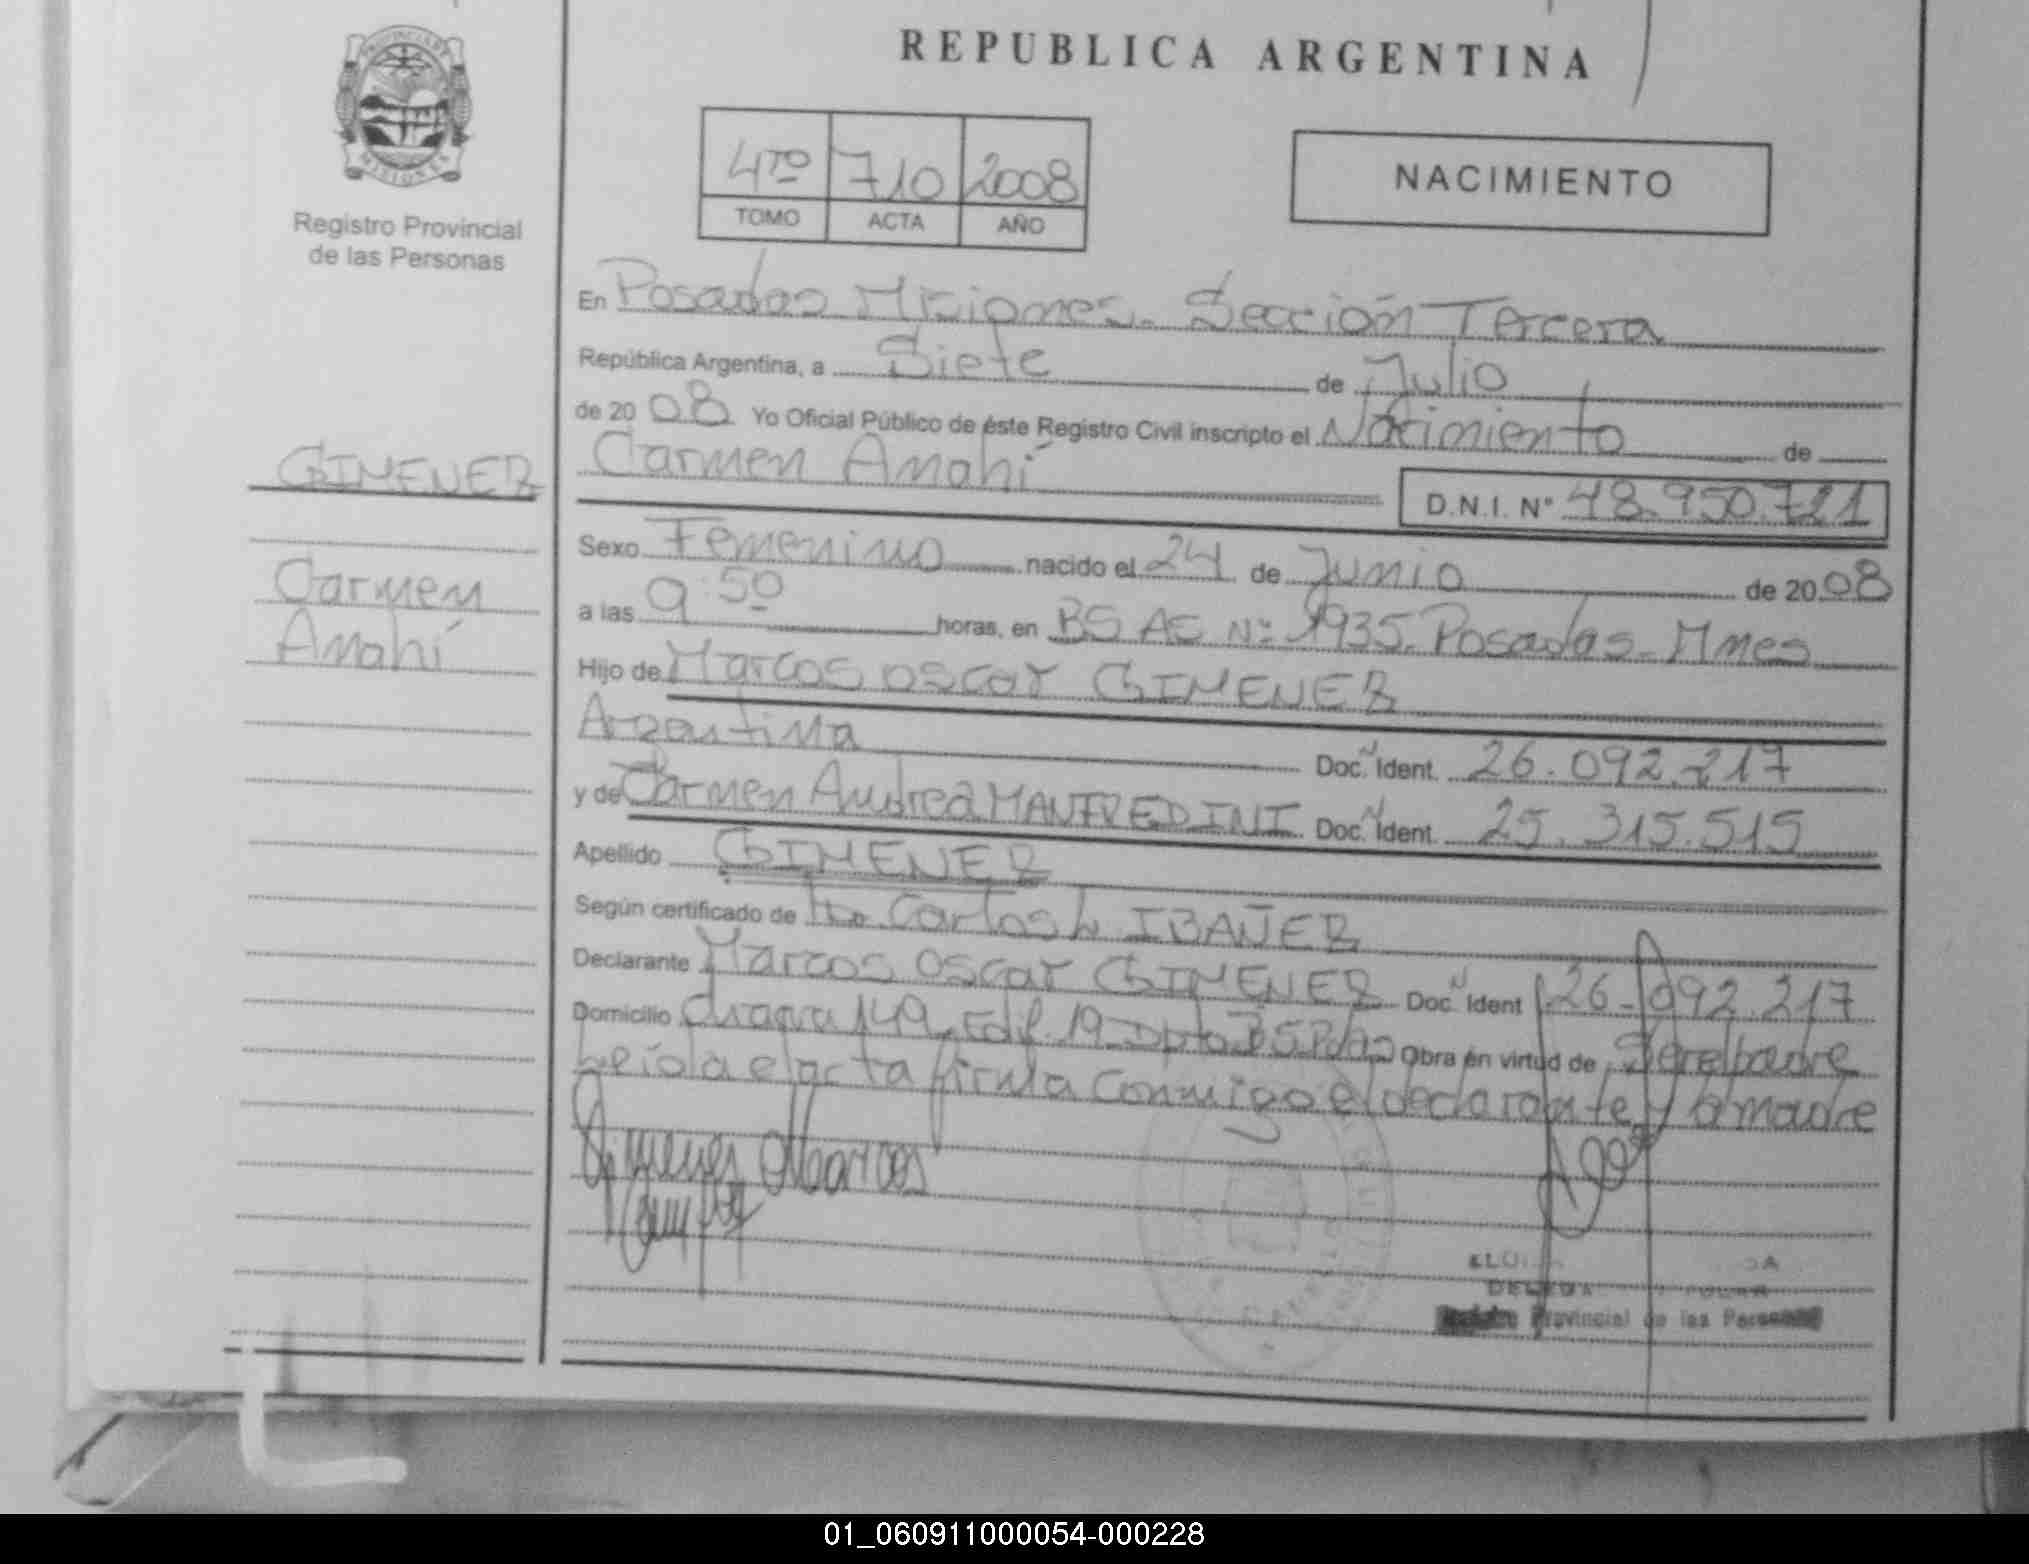 REPUBLICA ARGENTINA
PROVINCIA DE
MISIONES
Registro Provincial
de las Personas
4TO 710 2008
TOMO ACTA AÑO
NACIMIENTO
En Posadas Misiones. Sección Tercera
República Argentina, a Siete de Julio
de 2008 Yo Oficial Público de éste Registro Civil inscripto el Nacimiento de
GIMENEZ
Carmen Anahí
D.N.I. Nº 48.950.721
Carmen
Anahí
Sexo Femenino nacido el 24 de Junio de 2008
a las 9:50 horas, en BS AS Nº 1935. Posadas. Mnes
Hijo de Marcos Oscar GIMENEZ
Argentina Doc. Ident. 26.092.217
y de Carmen Andrea MANFREDINI Doc. Ident. 25.315.515
Apellido GIMENEZ
Según certificado de Carlos L IBAÑEZ
Declarante Marcos Oscar GIMENEZ Doc. Ident 26.092.217
Domicilio Chacra 149 Edif. 19 Dpto Obra en virtud de Ser el padre
Leída el acta firma conmigo el declarante y la madre
Gimenez Marcos
Registro Provincial de las Personas
01_060911000054-000228